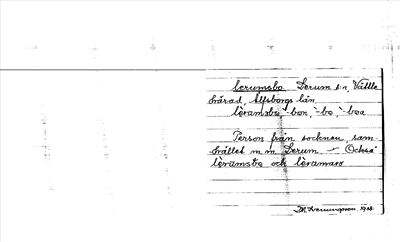 lerumsbo Lerum sn, Vättle
härad, Älfsborgs län
lèramsbo, -bon, -bo, -boa
Person från socknen, sam-
hället m.m. Lerum — Också
lèramsbo och lèramaro
1928